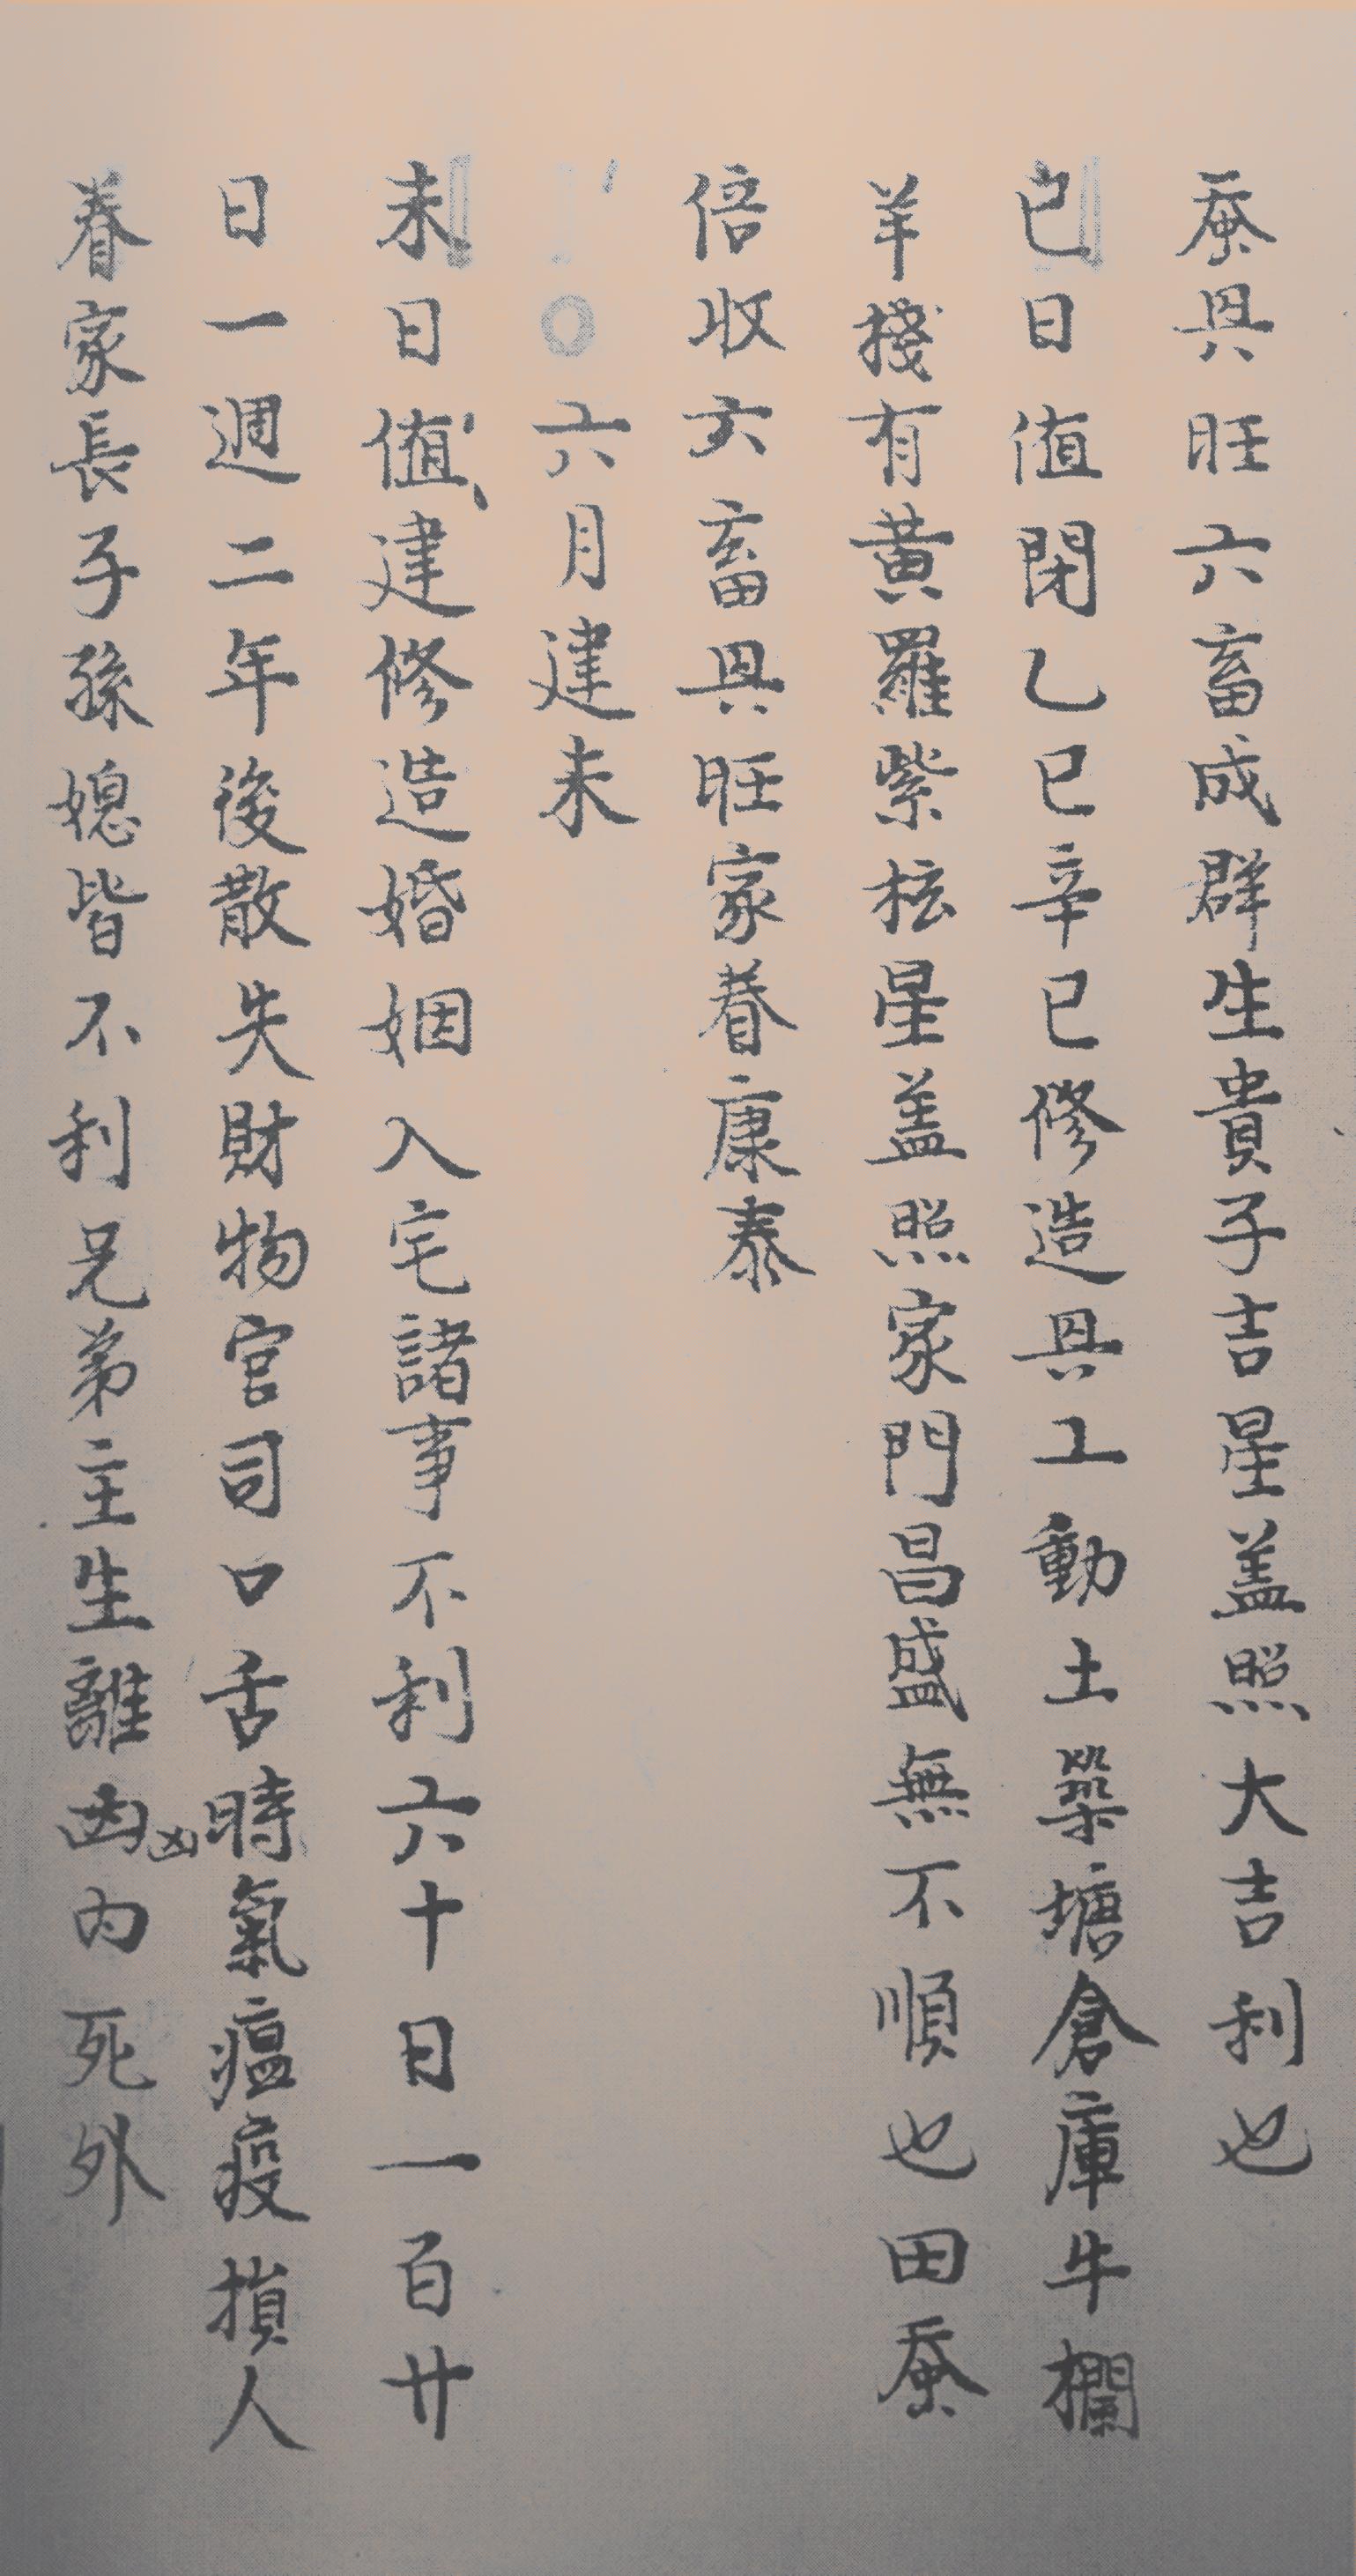 蚕㒷旺六畜成群生貴子吉星盖照大吉利也
巳日值閉乙巳辛巳修造㒷工動土築塘倉庫牛欄
羊棧有黃羅紫桧星盖照家門昌盛無不順也田蚕
倍收六畜㒷旺家眷康泰
○六月建未
未日值建修造婚姻入宅諸事不利六十日一百廿
日一週二年後散失財物官司口舌時氣瘟疫損人
眷家長子孫媳皆不利兄弟主生離凶凶內死外